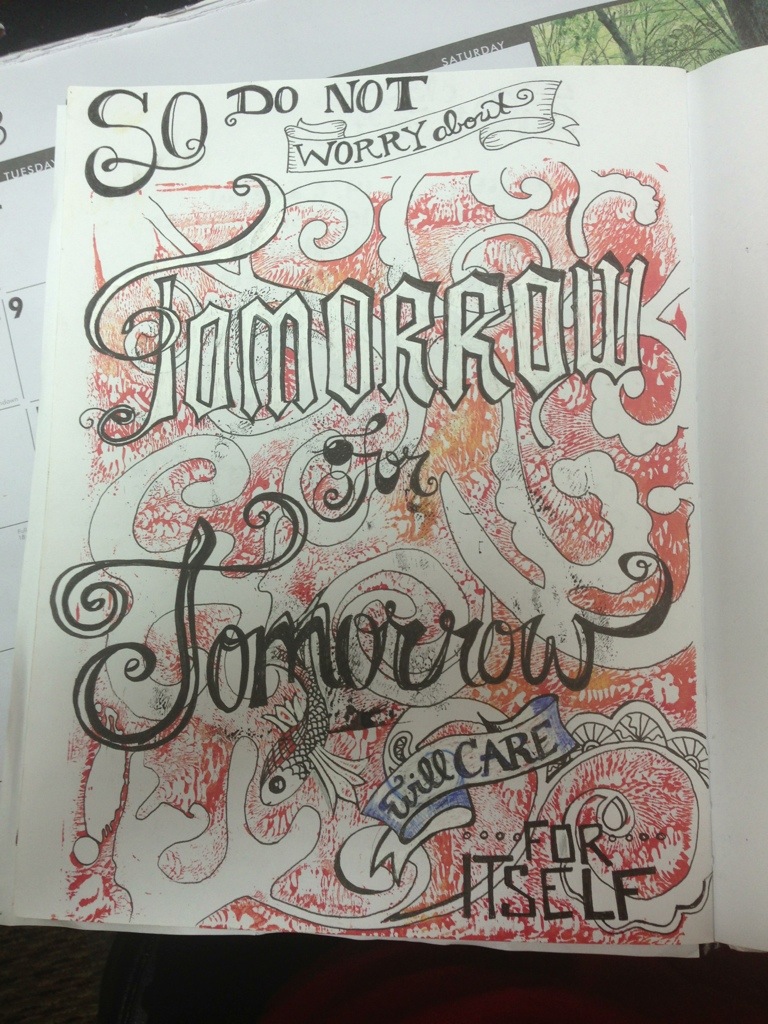 SATURDAY
TUESDAY
9
SO DO NOT
WORRY about
TOMORROW
for
Tomorrow
will CARE
FOR
ITSELF